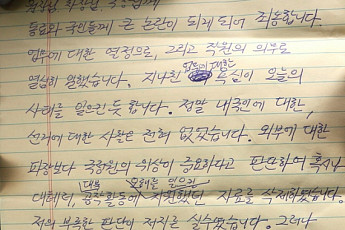 동료와 국민들께 큰 논란이 되게 되어 죄송합니다.
업무에 대한 열정으로, 그리고 직원의 의무로
열심히 일했습니다. 지나친 업무에 대한 욕심이 오늘의
사태를 일으킨 듯 합니다. 정말 내국인에 대한,
선거에 대한 사찰은 전혀 없었습니다. 외부에 대한
파장보다 국정원의 위상이 중요하다고 판단하여 혹시나
대테러, 대북 공작활동에 오해를 일으킨 지원했던 자료를 삭제하였습니다.
저의 부족한 판단이 저지른 실수였습니다. 그러나